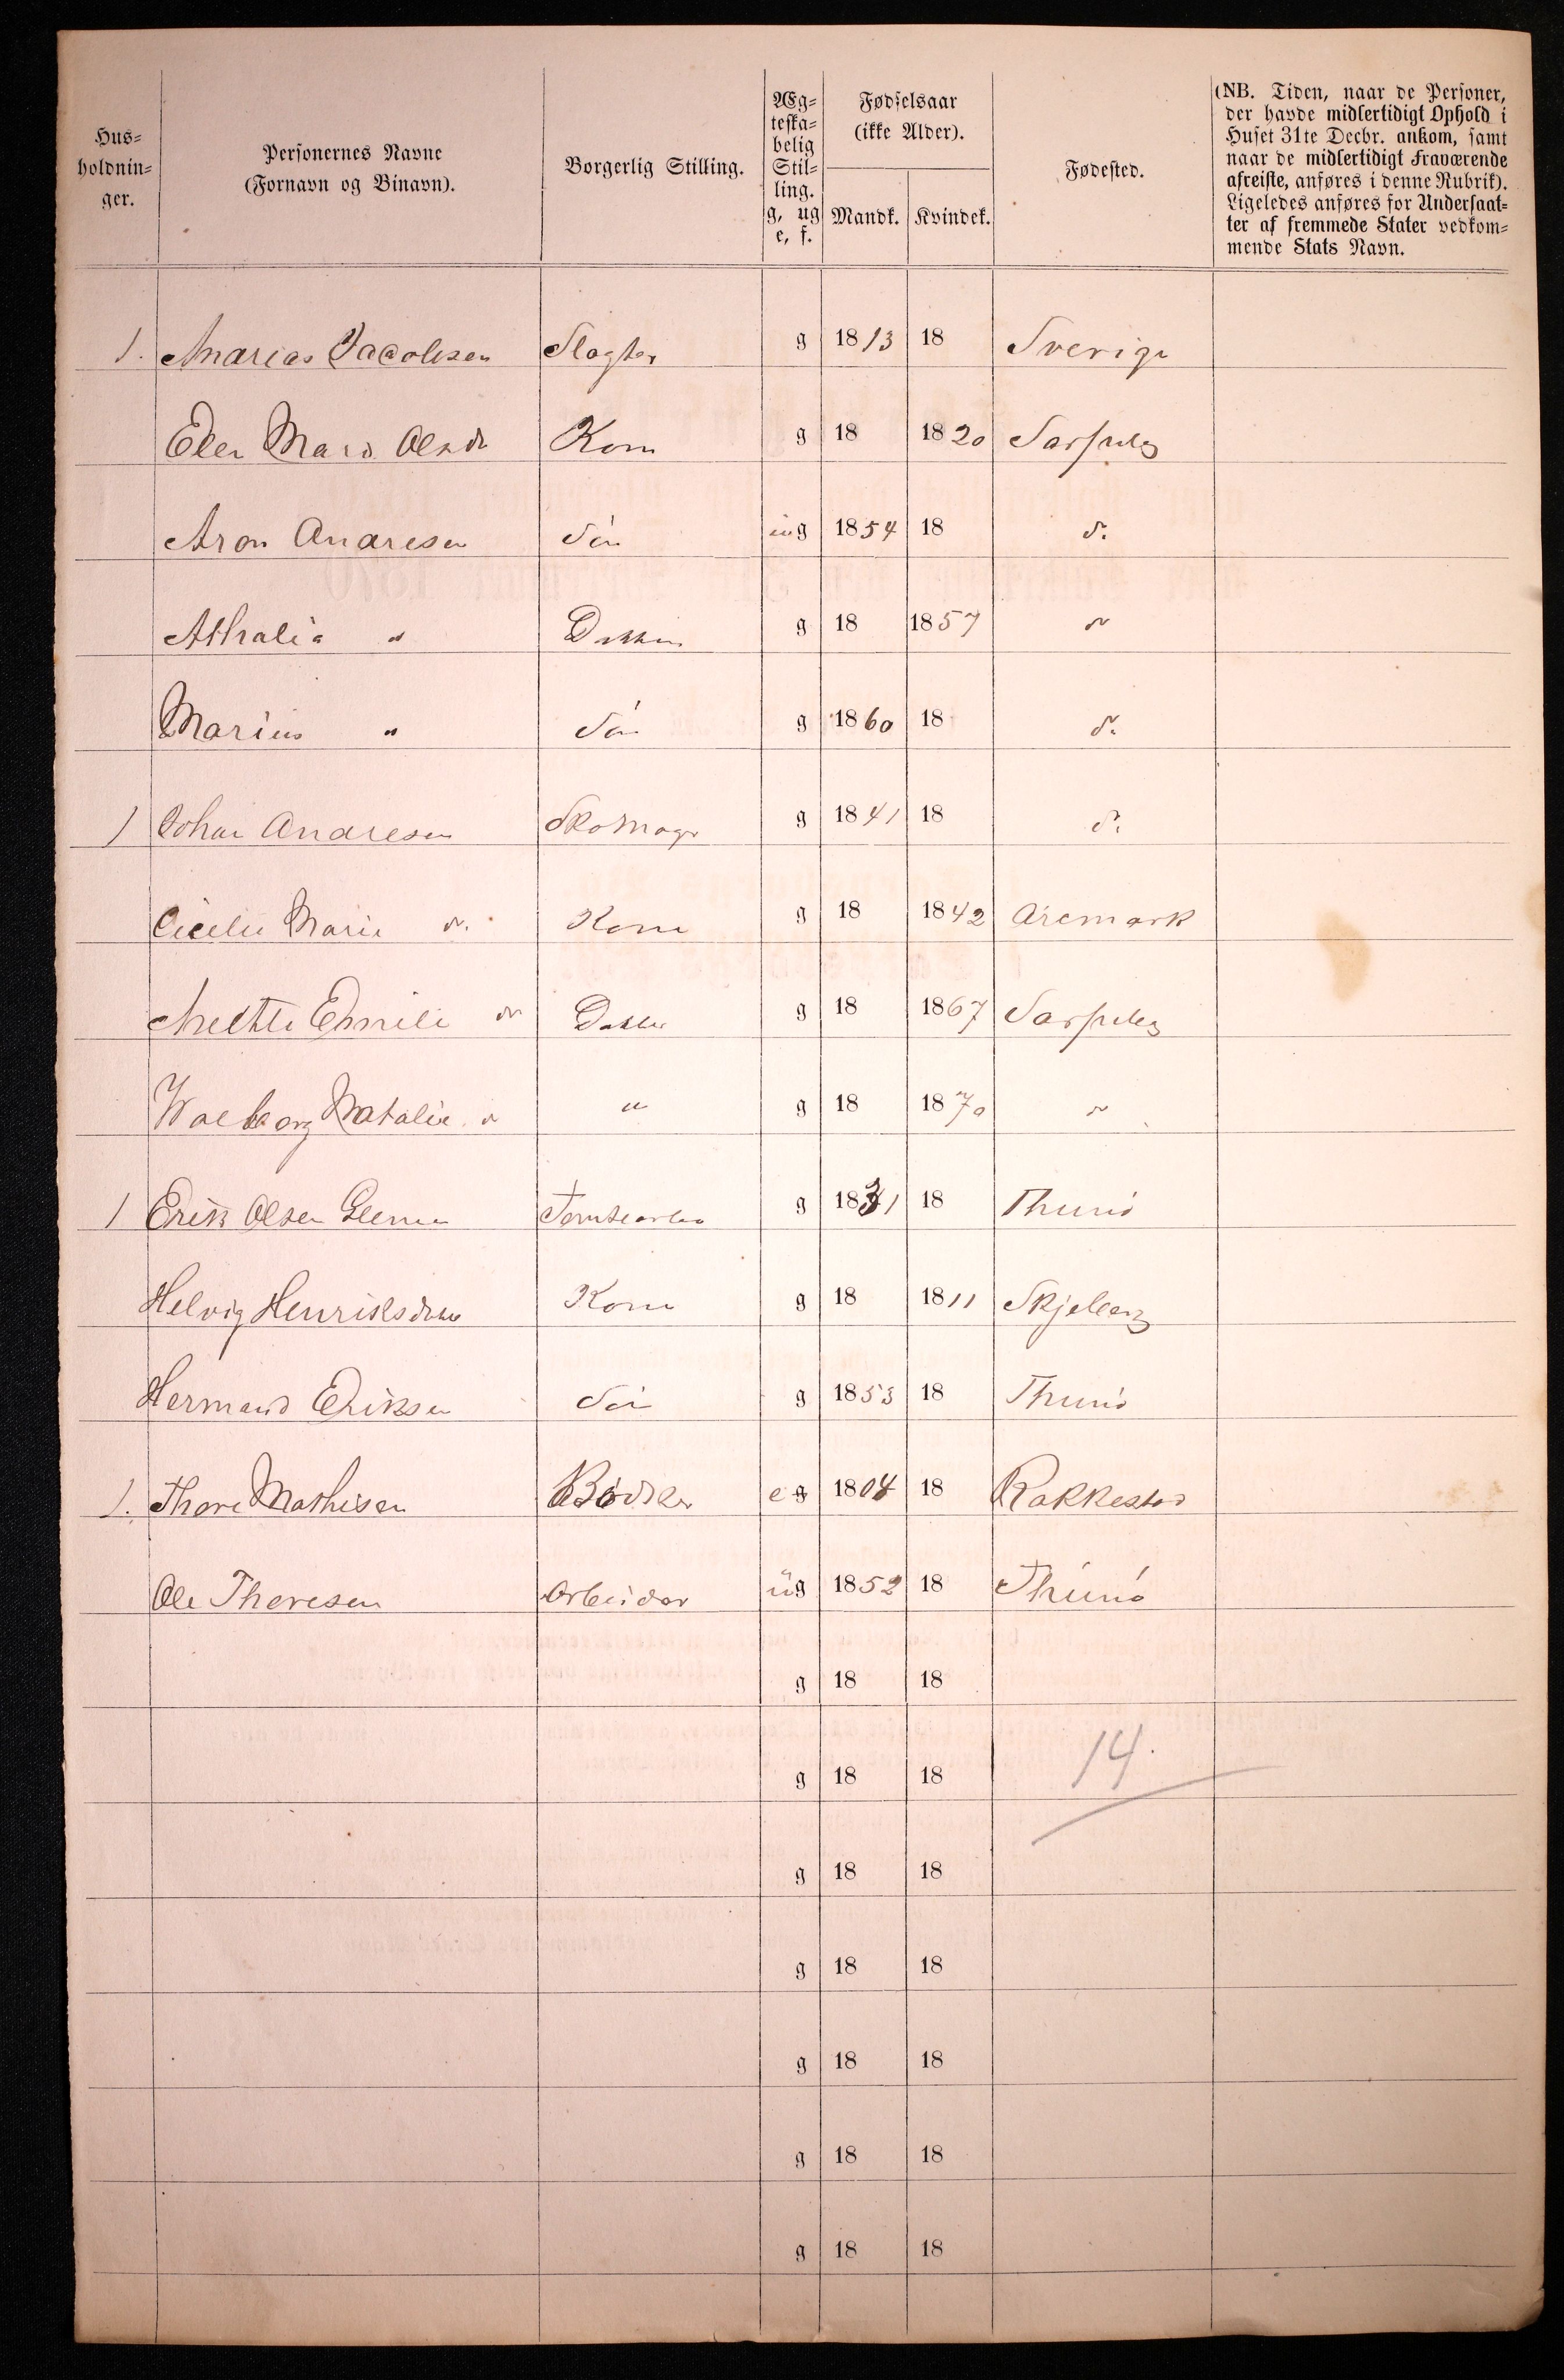 Hus-
holdnin-
ger.
Personernes Navne
(Fornavn og Binavn).
Borgerlig Stilling.
Æg-
teska-
belig
Stil-
ling.
g, ug
e, f.
Fødselsaar
(ikke Alder).
Mandk. Kvindek.
Fødested.
(NB. Tiden, naar de Personer,
der havde midlertidigt Ophold i
Huset 31te Decbr. ankom, samt
naar de midlertidigt Fraværende
afreiste, anføres i denne Rubrik).
Ligeledes anføres for Undersaat-
ter af fremmede Stater vedkom-
mende Stats Navn.
1. Andreas Jacobsen Slagter g 1813 18 Sverige
Elen Olsdr Kone g 18 1820 Sarpsbg
Aron Andresen Sön ug 1854 18 do
Athalia " Datter g 18 1857 do
Marius " Sön g 1860 18 do
1 Johan Andresen Skomager g 1841 18 do
Cicelie Marie do. Kone g 18 1842 Aremark
Anette Emilie do Datter g 18 1867 Sarpsbg
Walborg Natalie do " g 18 1870 do
1 Erik Olsen g 18 1 18 Thunö
Helvig Henriksdatter Kone g 18 1811 Skjeberg
Hermand Eriksen Sön g 1853 18 Thunö
1. Thore Mathisen Bödker e g 1804 18 Rakkestad
Ole Thoresen Arbeider üg 1852 18 Thunö
g 18 18
g 18 18 14.
g 18 18
g 18 18
g 18 18
g 18 18
g 18 18